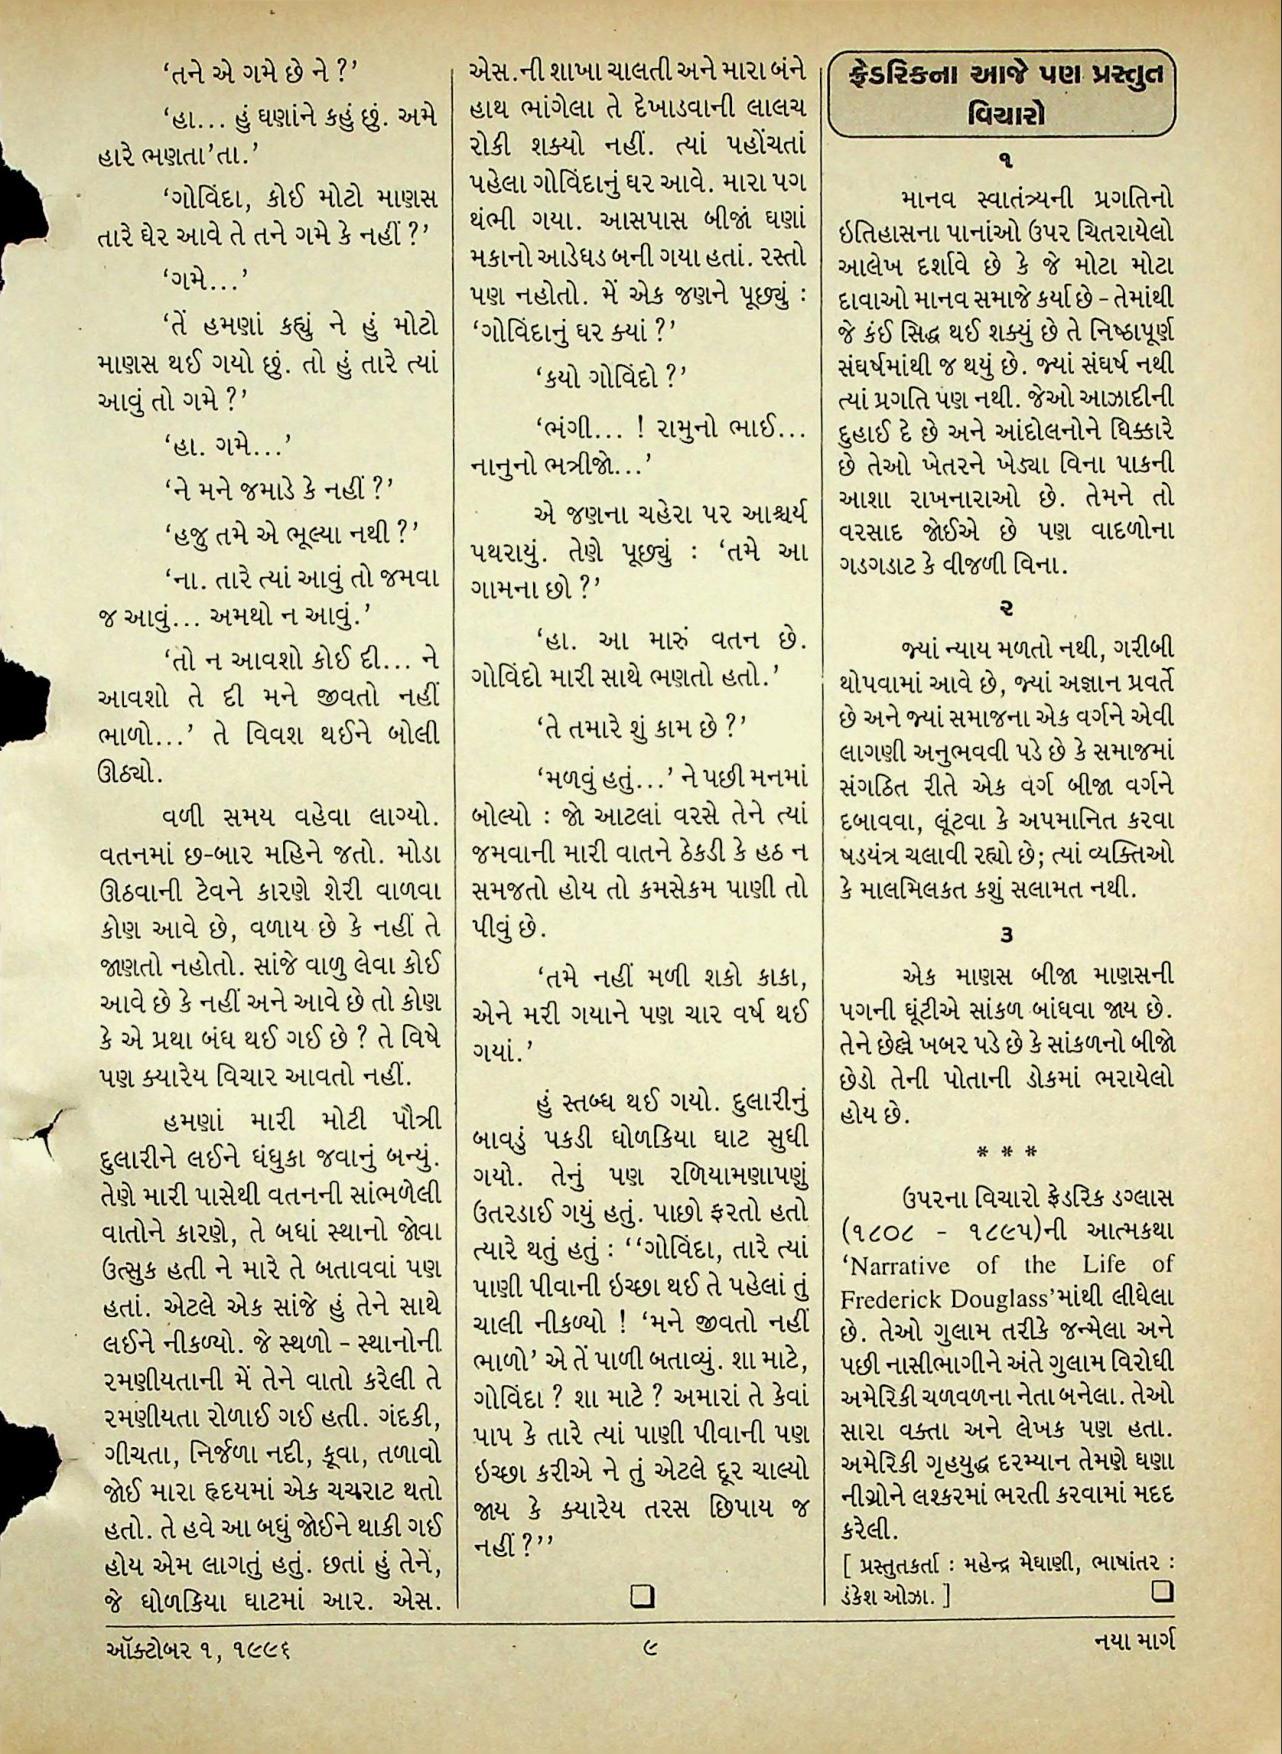 ‘તને એ ગમે છે ને ?’
‘હા... હું ઘણાંને કહું છું. અમે
હારે ભણતા’તા.’
‘ગોવિંદા, કોઈ મોટો માણસ
તારે ઘેર આવે તે તને ગમે કે નહીં ?’
‘ગમે...’
‘તેં હમણાં કહ્યું ને હું મોટો
માણસ થઈ ગયો છું. તો હું તારે ત્યાં
આવું તો ગમે ?’
‘હા. ગમે...’
‘ને મને જમાડે કે નહીં ?’
‘હજુ તમે એ ભૂલ્યા નથી ?’
‘ના. તારે ત્યાં આવું તો જમવા
જ આવું... અમથો ન આવું.’
‘તો ન આવશો કોઈ દી... ને
આવશો તે દી મને જીવતો નહીં
ભાળો...’ તે વિવશ થઈને બોલી
ઊઠ્યો.
વળી સમય વહેવા લાગ્યો.
વતનમાં છ-બાર મહિને જતો. મોડા
ઊઠવાની ટેવને કારણે શેરી વાળવા
કોણ આવે છે, વળાય છે કે નહીં તે
જાણતો નહોતો. સાંજે વાળુ લેવા કોઈ
આવે છે કે નહીં અને આવે છે તો કોણ
કે એ પ્રથા બંધ થઈ ગઈ છે ? તે વિષે
પણ ક્યારેય વિચાર આવતો નહીં.
હમણાં મારી મોટી પૌત્રી
દુલારીને લઈને ધંધુકા જવાનું બન્યું.
તેણે મારી પાસેથી વતનની સાંભળેલી
વાતોને કારણે, તે બધાં સ્થાનો જોવા
ઉત્સુક હતી ને મારે તે બતાવવાં પણ
હતાં. એટલે એક સાંજે હું તેને સાથે
લઈને નીકળ્યો. જે સ્થળો - સ્થાનોની
રમણીયતાની મેં તેને વાતો કરેલી તે
રમણીયતા રોળાઈ ગઈ હતી. ગંદકી,
ગીચતા, નિર્જળા નદી, કૂવા, તળાવો
જોઈ મારા હૃદયમાં એક ચચરાટ થતો
હતો. તે હવે આ બધું જોઈને થાકી ગઈ
હોય એમ લાગતું હતું. છતાં હું તેને,
જે ધોળકિયા ઘાટમાં આર. એસ.
એસ.ની શાખા ચાલતી અને મારા બંને
હાથ ભાંગેલા તે દેખાડવાની લાલચ
રોકી શક્યો નહીં. ત્યાં પહોંચતાં
પહેલા ગોવિંદાનું ઘર આવે. મારા પગ
થંભી ગયા. આસપાસ બીજાં ઘણાં
મકાનો આડેધડ બની ગયા હતાં. રસ્તો
પણ નહોતો. મેં એક જણને પૂછ્યું :
‘ગોવિંદાનું ઘર ક્યાં ?’
‘કયો ગોવિંદો ?’
‘ભંગી... ! રામુનો ભાઈ...
નાનુનો ભત્રીજો...’
એ જણના ચહેરા પર આશ્ચર્ય
પથરાયું. તેણે પૂછ્યું : ‘તમે આ
ગામના છો ?’
‘હા. આ મારું વતન છે.
ગોવિંદો મારી સાથે ભણતો હતો.’
‘તે તમારે શું કામ છે ?’
‘મળવું હતું...’ ને પછી મનમાં
બોલ્યો : જો આટલાં વરસે તેને ત્યાં
જમવાની મારી વાતને ઠેકડી કે હઠ ન
સમજતો હોય તો કમસેકમ પાણી તો
પીવું છે.
‘તમે નહીં મળી શકો કાકા,
એને મરી ગયાને પણ ચાર વર્ષ થઈ
ગયાં.’
હું સ્તબ્ધ થઈ ગયો. દુલારીનું
બાવડું પકડી ધોળકિયા ઘાટ સુધી
ગયો. તેનું પણ રળિયામણાપણું
ઉતરડાઈ ગયું હતું. પાછો ફરતો હતો
ત્યારે થતું હતું : ‘‘ગોવિંદા, તારે ત્યાં
પાણી પીવાની ઇચ્છા થઈ તે પહેલાં તું
ચાલી નીકળ્યો ! ‘મને જીવતો નહીં
ભાળો’ એ તેં પાળી બતાવ્યું. શા માટે,
ગોવિંદા ? શા માટે ? અમારાં તે કેવાં
પાપ કે તારે ત્યાં પાણી પીવાની પણ
ઇચ્છા કરીએ ને તું એટલે દૂર ચાલ્યો
જાય કે ક્યારેય તરસ છિપાય જ
નહીં ?’’
ફ્રેડરિકના આજે પણ પ્રસ્તુત
વિચારો
૧
માનવ સ્વાતંત્ર્યની પ્રગતિનો
ઇતિહાસના પાનાંઓ ઉપર ચિતરાયેલો
આલેખ દર્શાવે છે કે જે મોટા મોટા
દાવાઓ માનવ સમાજે કર્યા છે - તેમાંથી
જે કંઈ સિદ્ધ થઈ શક્યું છે તે નિષ્ઠાપૂર્ણ
સંઘર્ષમાંથી જ થયું છે. જ્યાં સંઘર્ષ નથી
ત્યાં પ્રગતિ પણ નથી. જેઓ આઝાદીની
દુહાઈ દે છે અને આંદોલનોને ધિક્કારે
છે તેઓ ખેતરને ખેડ્યા વિના પાકની
આશા રાખનારાઓ છે. તેમને તો
વરસાદ જોઈએ છે પણ વાદળોના
ગડગડાટ કે વીજળી વિના.
૨
જ્યાં ન્યાય મળતો નથી, ગરીબી
થોપવામાં આવે છે, જ્યાં અજ્ઞાન પ્રવર્તે
છે અને જ્યાં સમાજના એક વર્ગને એવી
લાગણી અનુભવવી પડે છે કે સમાજમાં
સંગઠિત રીતે એક વર્ગ બીજા વર્ગને
દબાવવા, લૂંટવા કે અપમાનિત કરવા
ષડયંત્ર ચલાવી રહ્યો છે; ત્યાં વ્યક્તિઓ
કે માલમિલકત કશું સલામત નથી.
૩
એક માણસ બીજા માણસની
પગની ઘૂંટીએ સાંકળ બાંધવા જાય છે.
તેને છેલ્લે ખબર પડે છે કે સાંકળનો બીજો
છેડો તેની પોતાની ડોકમાં ભરાયેલો
હોય છે.
* * *
ઉપરના વિચારો ફ્રેડરિક ડગ્લાસ
(૧૮૦૮ - ૧૮૯૫)ની આત્મકથા
‘Narrative of the Life of
Frederick Douglass’માંથી લીધેલા
છે. તેઓ ગુલામ તરીકે જન્મેલા અને
પછી નાસીભાગીને અંતે ગુલામ વિરોધી
અમેરિકી ચળવળના નેતા બનેલા. તેઓ
સારા વક્તા અને લેખક પણ હતા.
અમેરિકી ગૃહયુદ્ધ દરમ્યાન તેમણે ઘણા
નીગ્રોને લશ્કરમાં ભરતી કરવામાં મદદ
કરેલી.
[ પ્રસ્તુતકર્તા : મહેન્દ્ર મેઘાણી, ભાષાંતર :
ડંકેશ ઓઝા. ]
ઑક્ટોબર ૧, ૧૯૯૬
૯
નયા માર્ગ